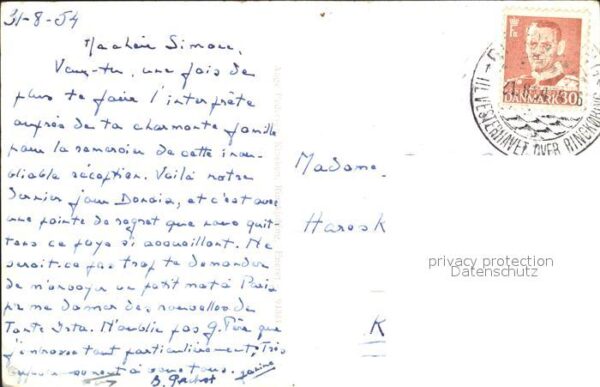 31-8-54
Ma chère Simone,
Veux-tu, une fois de
plus te faire l'interprète
auprès de ta charmante famille
pour la remercier de cette inou-
bliable réception. Voilà notre
dernier jour Danois, et c'est avec
une pointe de regret que nous quit
tons ce pays si accueillant. Ne
serait-ce pas trop te demander
de m'envoyer un petit mot à Paris
pr me donner des nouvelles de
Tante Asta. N'oublie pas G. Père que
j'embrasse tant particulièrement. Très
à vous tous.
DANMARK 30
TIL VESTERHAVET OVER RINGKØBING
Madame
Haresk
K
privacy protection
Datenschutz